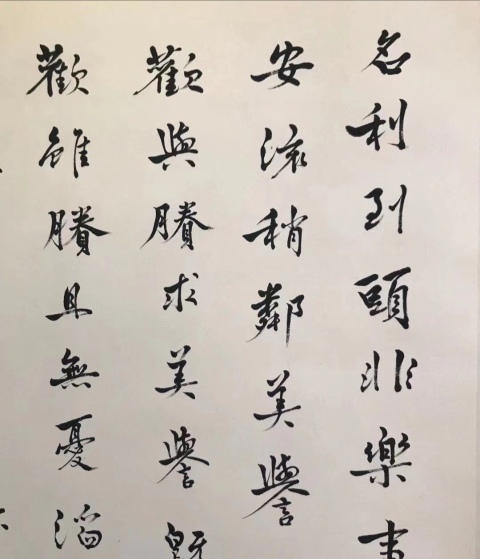 名利到頭非樂事
安流稍鄰美譽
歡與賸求美譽既
歡雖賸且無憂滔